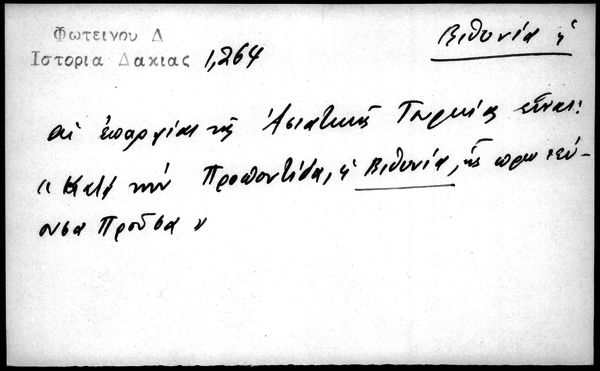 Φωτεινου Δ
Ιστορια Δακιας 1,264
Βιθυνία ἡ
αἱ ἐπαρχίαι τῆς Ἀσιατικῆς Τουρκίας εἶναι:
« Κατά τήν Προποντίδα, ἡ Βιθυνία, ἧς πρωτεύ-
ουσα Προῦσα »